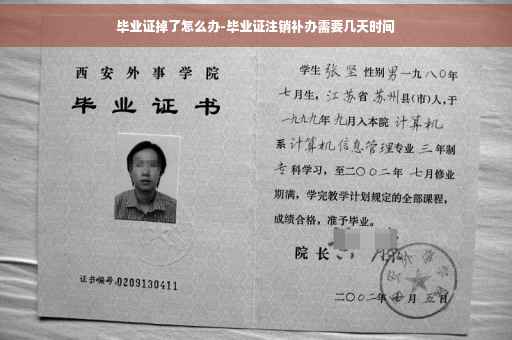 毕业证掉了怎么办-毕业证注销补办需要几天时间
西安外事学院
毕业证书
证书编号:0209130411
学生 张坚 性别男一九八〇年
七月生，江苏省苏州县(市)人,于
一九九九年九月入本院 计算机
系计算机信息管理专业 三 年制
专科学习，至二〇〇二年 七月修业
期满，学完教学计划规定的全部课程，
成绩合格，准予毕业。
院长
二〇〇二年 月 五日